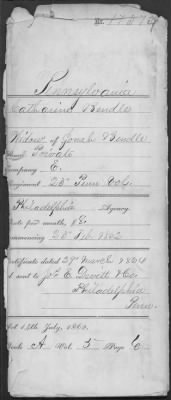 No. 17876
Pennsylvania
Catharine Bendle
Widow of Jonah Bendle
Rank Private
Company E.
Regiment 23" Penn Vol.
Philadelphia Agency
Rate per month, $8.
Commencing 28" Feb. 1862
Certificate dated 29" March 1864
and sent to E. Devitt & Co.
Philadelphia
Penn.
Act 14th July, 1862.
Book A Vol. 5 Page 6